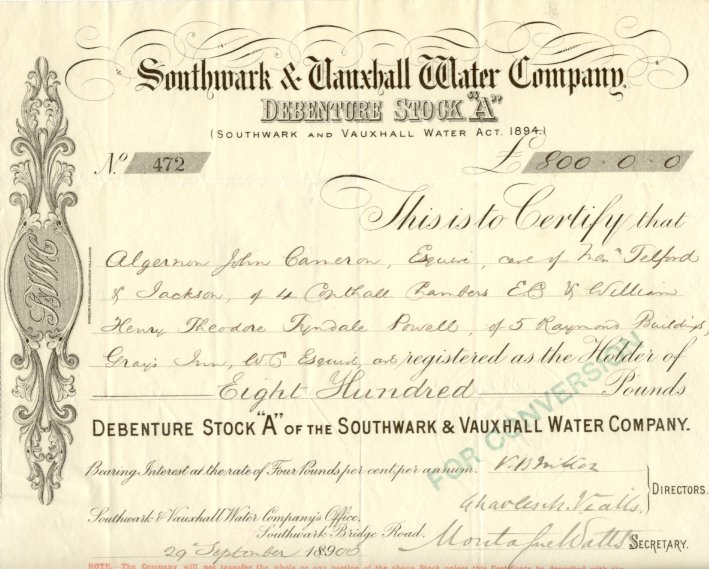 Southwark & Vauxhall Water Company.
DEBENTURE STOCK "A"
(SOUTHWARK AND VAUXHALL WATER ACT. 1894.)
No. 472
£ 800 . 0 . 0
This is to Certify that
Algernon John Cameron, Esquire, care of Messrs Telford
& Jackson, of 4 Copthall Chambers EC & William
Henry Theodore Tyndale Powell, of 5 Raymond Buildings,
Grays Inn, WC Esquire, are registered as the Holder of
Eight Hundred Pounds
DEBENTURE STOCK "A" OF THE SOUTHWARK & VAUXHALL WATER COMPANY.
FOR CONVERSION
Bearing Interest at the rate of Four Pounds per cent, per annum.
DIRECTORS.
Southwark & Vauxhall Water Company's Office,
Southwark Bridge Road.
Montague Watts SECRETARY.
29 September 1890
NOTE. The Company will not transfer the whole or any portion of the above Stock unless this Certificate be deposited with the